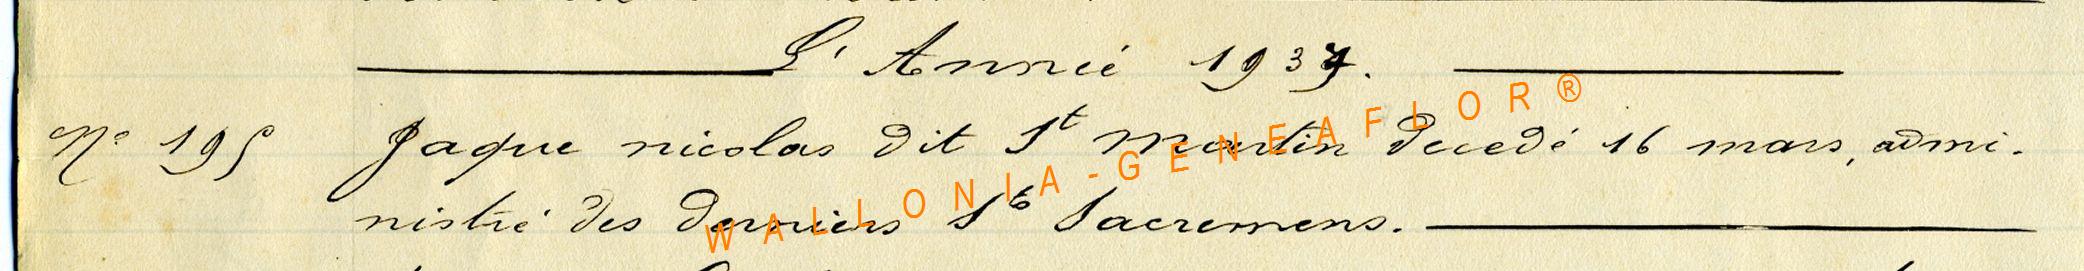 L' Anneé 1934.
N° 195 Jaque nicolas dit St Martin decedé 16 mars, admi-
nistré des derniers Sts Sacremens.
WALLONIA-GENEAFLOR®